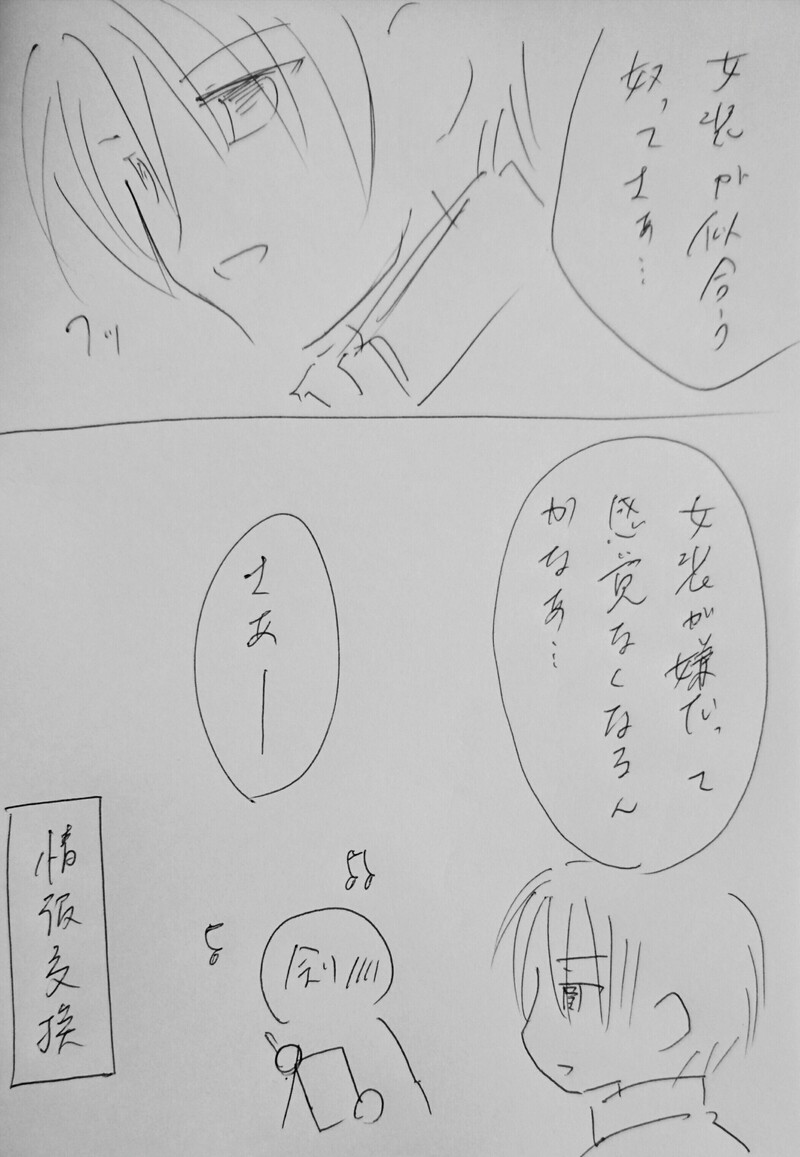 女装が似合う
奴ってさぁ…
フッ
女装が嫌だって
感覚なくなるん
かなあ…
さあー
情報交換